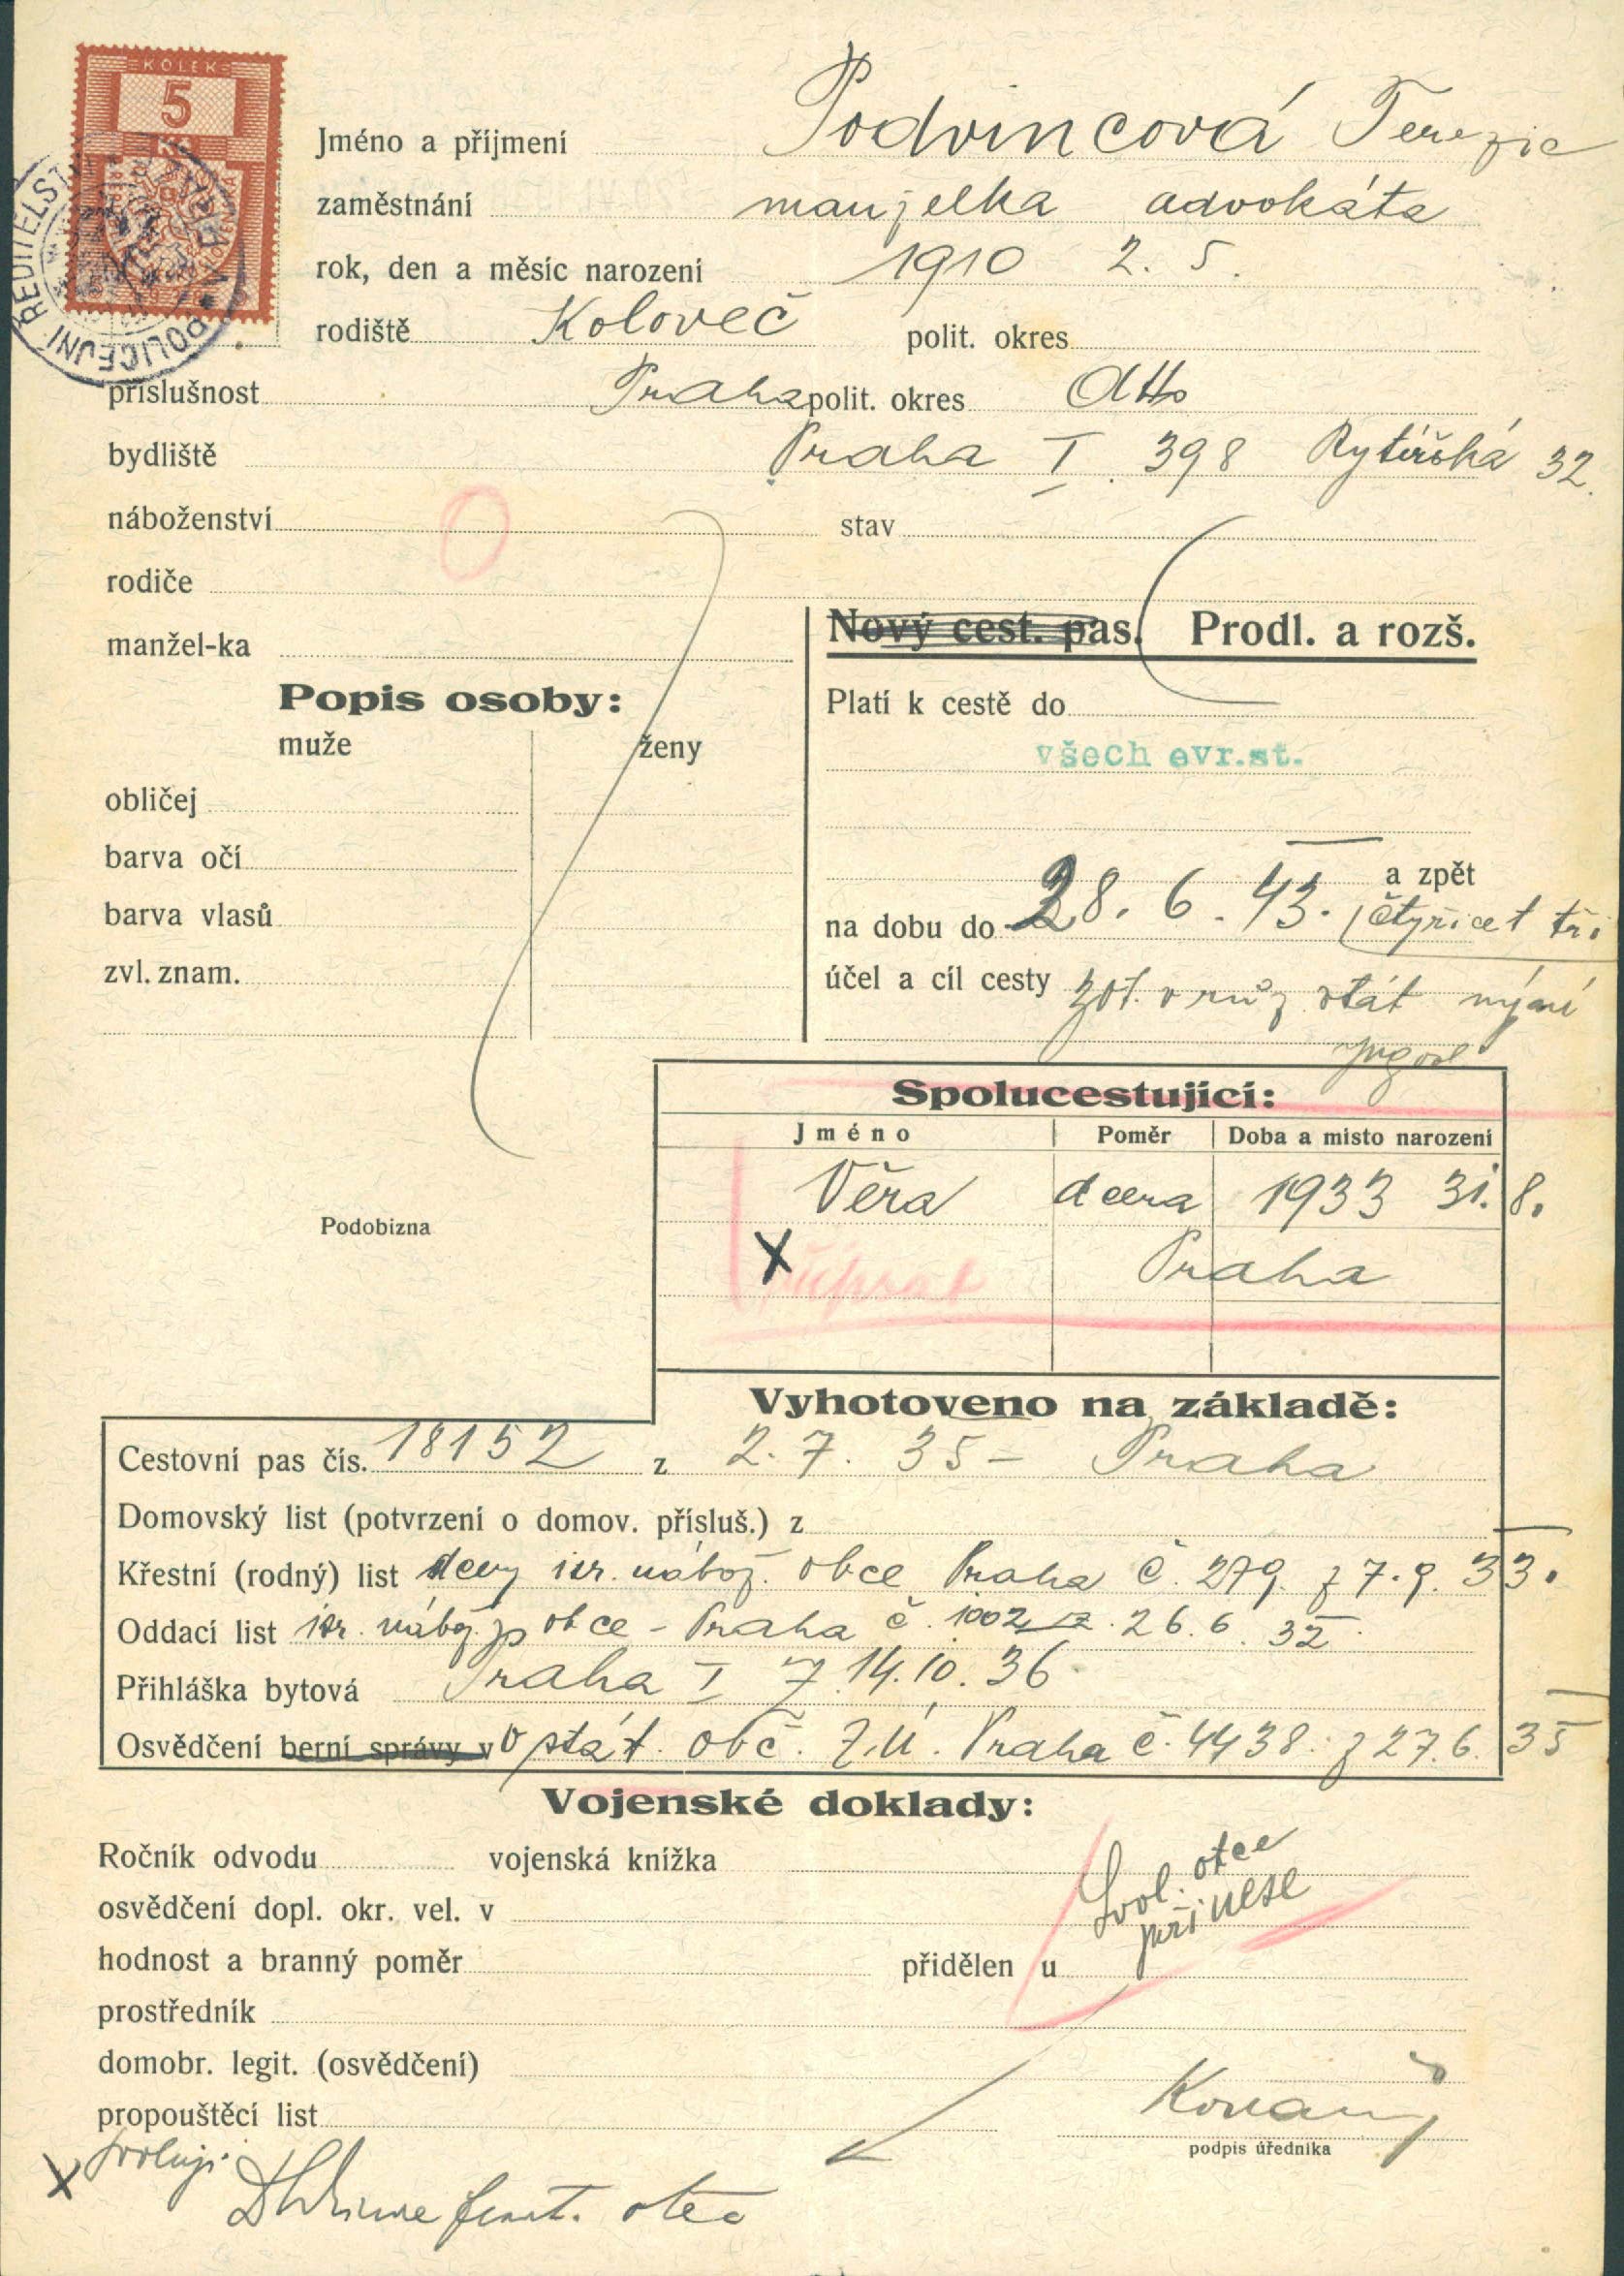 KOLEK
5
Kč
POLICEJNÍ ŘEDITELSTVÍ
Jméno a příjmení Podvincová Terezie
zaměstnání manželka advokáta
rok, den a měsíc narození 1910 2. 5.
rodiště Koloveč polit. okres
příslušnost Praha polit. okres dtto
bydliště Praha I. 398 Rytířská 32.
náboženství stav
rodiče
manžel-ka
Nový cest. pas. Prodl. a rozš.
Popis osoby:
muže ženy
obličej
barva očí
barva vlasů
zvl. znam.
Platí k cestě do
všech evr.st.
a zpět
na dobu do 28. 6. 43. čtyřicet tři
účel a cíl cesty zot. v růz stát nyní
Jugosl
Spolucestující:
Jméno Poměr Doba a místo narození
Věra dcera 1933 31. 8.
X připsat Praha
Podobizna
Vyhotoveno na základě:
Cestovní pas čís. 18152 z 2. 7. 35 - Praha
Domovský list (potvrzení o domov. přísluš.) z
Křestní (rodný) list dcery isr. nábož. obce Praha č. 279. z 7. 9. 33.
Oddací list isr. nábož. obce - Praha č. 1002 z 26. 6. 32.
Přihláška bytová Praha I z 14. 10. 36
Osvědčení berní správy v o stát. obč. Z.Ú. Praha č. 4438. z 27. 6. 35
Vojenské doklady:
Ročník odvodu vojenská knížka
osvědčení dopl. okr. vel. v
Svol. otce
přinese
hodnost a branný poměr přidělen u
prostředník
domobr. legit. (osvědčení)
propouštěcí list
podpis úředníka
X svoluji
otec